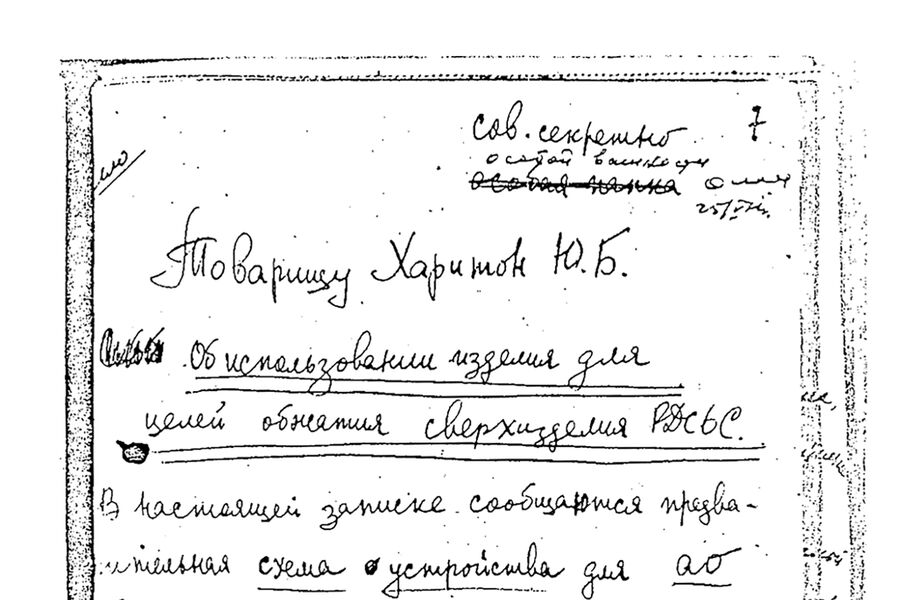 7
Сов. секретно
особой важности
особая папка
Товарищу Харитон Ю.Б.
Об использовании изделия для
целей обжатия сверхизделия РДС6С.
В настоящей записке сообщаются предва-
ительная схема устройства для АО